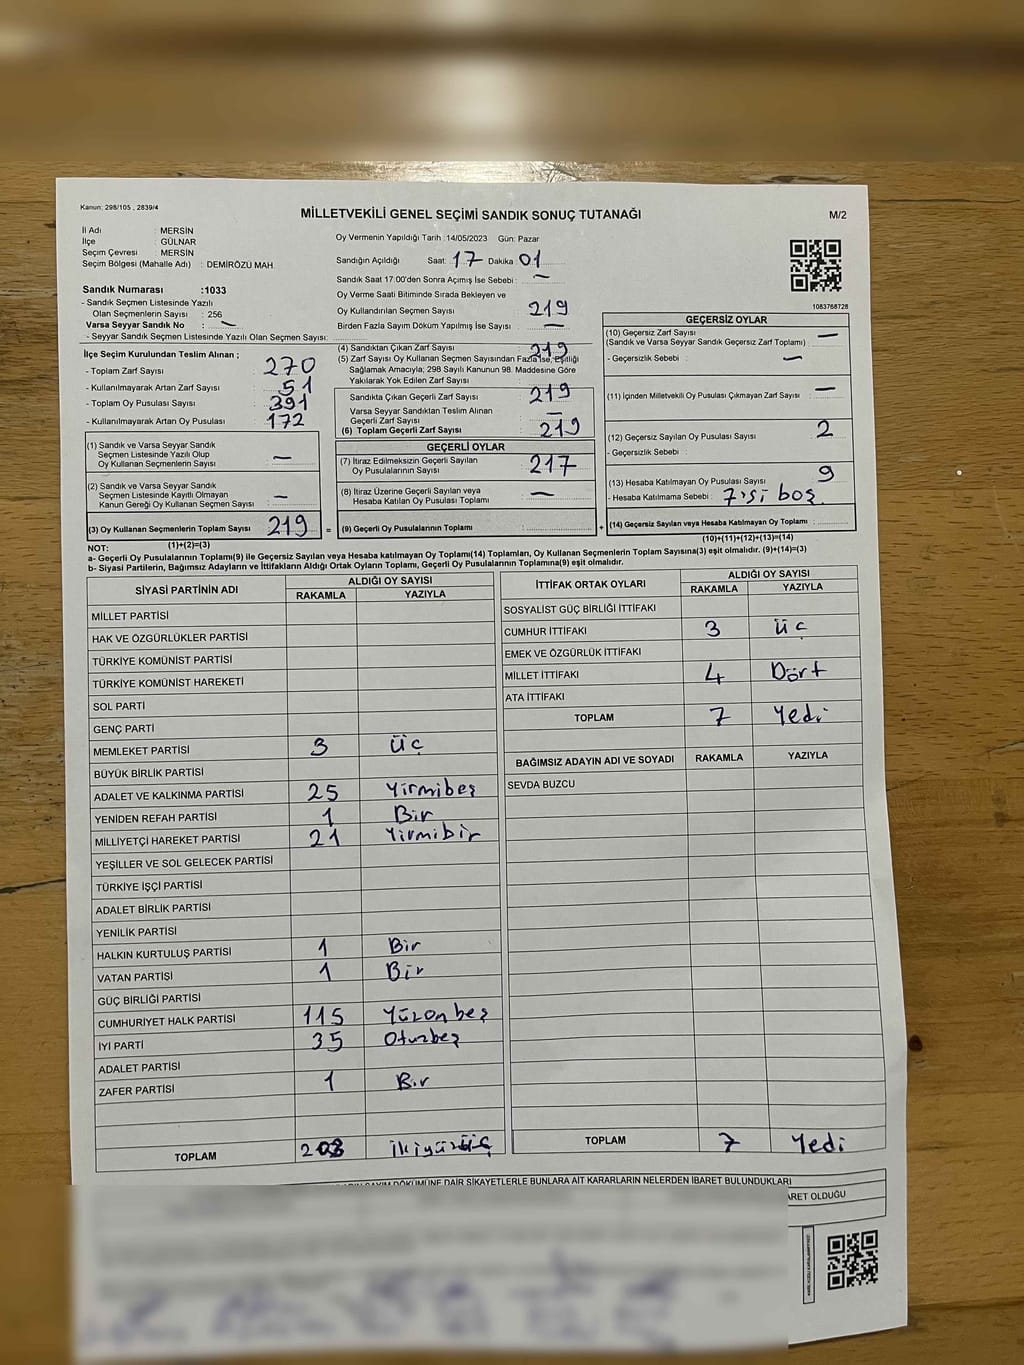 Kanun: 298/105 , 2839/4
MİLLETVEKİLİ GENEL SEÇİMİ SANDIK SONUÇ TUTANAĞI
M/2
İl Adı : MERSİN
İlçe : GÜLNAR
Seçim Çevresi : MERSİN
Seçim Bölgesi (Mahalle Adı) : DEMİRÖZÜ MAH.
Sandık Numarası :1033
- Sandık Seçmen Listesinde Yazılı
Olan Seçmenlerin Sayısı : 256
Varsa Seyyar Sandık No : —
- Seyyar Sandık Seçmen Listesinde Yazılı Olan Seçmen Sayısı:
İlçe Seçim Kurulundan Teslim Alınan ;
- Toplam Zarf Sayısı 270
- Kullanılmayarak Artan Zarf Sayısı 51
- Toplam Oy Pusulası Sayısı 391
- Kullanılmayarak Artan Oy Pusulası 172
(1) Sandık ve Varsa Seyyar Sandık
Seçmen Listesinde Yazılı Olup
Oy Kullanan Seçmenlerin Sayısı —
(2) Sandık ve Varsa Seyyar Sandık
Seçmen Listesinde Kayıtlı Olmayan
Kanun Gereği Oy Kullanan Seçmen Sayısı —
(3) Oy Kullanan Seçmenlerin Toplam Sayısı 219 =
(1)+(2)=(3)
Oy Vermenin Yapıldığı Tarih :14/05/2023 Gün: Pazar
Sandığın Açıldığı Saat: 17 Dakika: 01
Sandık Saat 17:00'den Sonra Açımış İse Sebebi : —
Oy Verme Saati Bitiminde Sırada Bekleyen ve
Oy Kullandırılan Seçmen Sayısı 219
Birden Fazla Sayım Döküm Yapılmış İse Sayısı —
(4) Sandıktan Çıkan Zarf Sayısı 219
(5) Zarf Sayısı Oy Kullanan Seçmen Sayısından Fazla İse, Eşitliği
Sağlamak Amacıyla; 298 Sayılı Kanunun 98. Maddesine Göre
Yakılarak Yok Edilen Zarf Sayısı
Sandıkta Çıkan Geçerli Zarf Sayısı 219
Varsa Seyyar Sandıktan Teslim Alınan
Geçerli Zarf Sayısı —
(6) Toplam Geçerli Zarf Sayısı 219
GEÇERLİ OYLAR
(7) İtiraz Edilmeksizin Geçerli Sayılan
Oy Pusulalarının Sayısı 217
(8) İtiraz Üzerine Geçerli Sayılan veya
Hesaba Katılan Oy Pusulası Toplamı —
(9) Geçerli Oy Pusulalarının Toplamı +
1083768728
GEÇERSİZ OYLAR
(10) Geçersiz Zarf Sayısı
(Sandık ve Varsa Seyyar Sandık Geçersiz Zarf Toplamı) —
- Geçersizlik Sebebi : —
(11) İçinden Milletvekili Oy Pusulası Çıkmayan Zarf Sayısı —
(12) Geçersiz Sayılan Oy Pusulası Sayısı 2
- Geçersizlik Sebebi :
(13) Hesaba Katılmayan Oy Pusulası Sayısı 9
- Hesaba Katılmama Sebebi : 7'si boş
(14) Geçersiz Sayılan veya Hesaba Katılmayan Oy Toplamı
(10)+(11)+(12)+(13)=(14)
NOT:
a- Geçerli Oy Pusulalarının Toplamı(9) ile Geçersiz Sayılan veya Hesaba katılmayan Oy Toplamı(14) Toplamları, Oy Kullanan Seçmenlerin Toplam Sayısına(3) eşit olmalıdır. (9)+(14)=(3)
b- Siyasi Partilerin, Bağımsız Adayların ve İttifakların Aldığı Ortak Oyların Toplamı, Geçerli Oy Pusulalarının Toplamına(9) eşit olmalıdır.
SİYASİ PARTİNİN ADI ALDIĞI OY SAYISI
RAKAMLA YAZIYLA
MİLLET PARTİSİ
HAK VE ÖZGÜRLÜKLER PARTİSİ
TÜRKİYE KOMÜNİST PARTİSİ
TÜRKİYE KOMÜNİST HAREKETİ
SOL PARTİ
GENÇ PARTİ
MEMLEKET PARTİSİ 3 üç
BÜYÜK BİRLİK PARTİSİ
ADALET VE KALKINMA PARTİSİ 25 Yirmibeş
YENİDEN REFAH PARTİSİ 1 Bir
MİLLİYETÇİ HAREKET PARTİSİ 21 Yirmibir
YEŞİLLER VE SOL GELECEK PARTİSİ
TÜRKİYE İŞÇİ PARTİSİ
ADALET BİRLİK PARTİSİ
YENİLİK PARTİSİ
HALKIN KURTULUŞ PARTİSİ 1 Bir
VATAN PARTİSİ 1 Bir
GÜÇ BİRLİĞİ PARTİSİ
CUMHURİYET HALK PARTİSİ 115 Yüzonbeş
İYİ PARTİ 35 Otuzbeş
ADALET PARTİSİ
ZAFER PARTİSİ 1 Bir
TOPLAM 203 ikiyüzüç
İTTİFAK ORTAK OYLARI ALDIĞI OY SAYISI
RAKAMLA YAZIYLA
SOSYALİST GÜÇ BİRLİĞİ İTTİFAKI
CUMHUR İTTİFAKI 3 üç
EMEK VE ÖZGÜRLÜK İTTİFAKI
MİLLET İTTİFAKI 4 Dört
ATA İTTİFAKI
TOPLAM 7 Yedi
BAĞIMSIZ ADAYIN ADI VE SOYADI RAKAMLA YAZIYLA
SEVDA BUZCU
TOPLAM 7 Yedi
SAYIM DÖKÜMÜNE DAİR ŞİKAYETLERLE BUNLARA AİT KARARLARIN NELERDEN İBARET BULUNDUKLARI
OLDUĞU